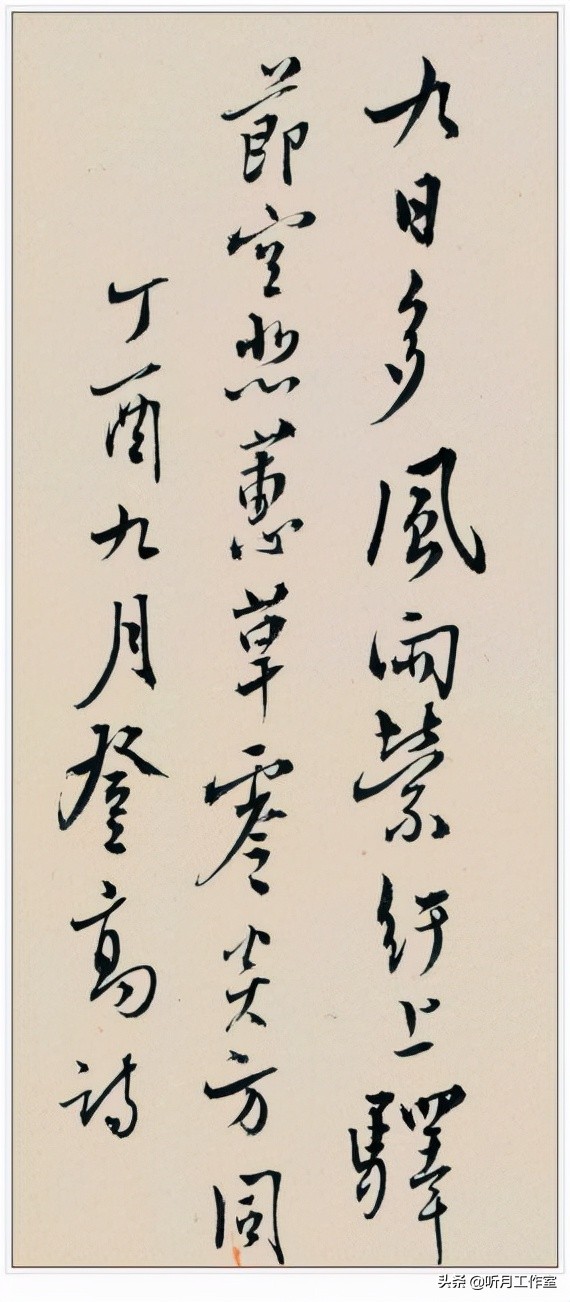 九日多風雨縈紆上驛
節空悲蕙草零炎方同
丁酉九月登高詩
头条 @听月工作室